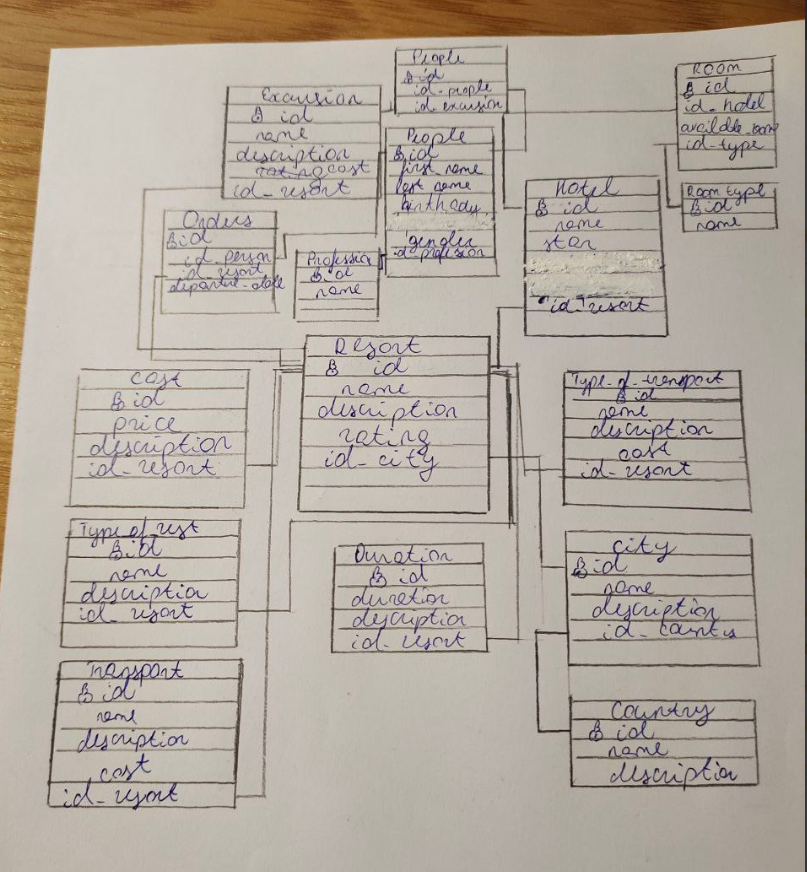 People
id
id-people
id-excursion
Room
id
id-hotel
available-room
id-type
Excursion
id
name
description
cost
id-resort
People
id
first name
last name
birthday
gender
id-profession
Hotel
id
name
star
id-resort
Room type
id
name
Orders
id
id-person
id-resort
departure-date
Profession
id
name
Resort
id
name
description
rating
id-city
Cost
id
price
description
id-resort
Type-of-transport
id
name
description
cost
id-resort
Type of rest
id
name
description
id-resort
Duration
id
duration
description
id-resort
City
id
name
description
Transport
id
name
description
cost
id-resort
Country
id
name
description